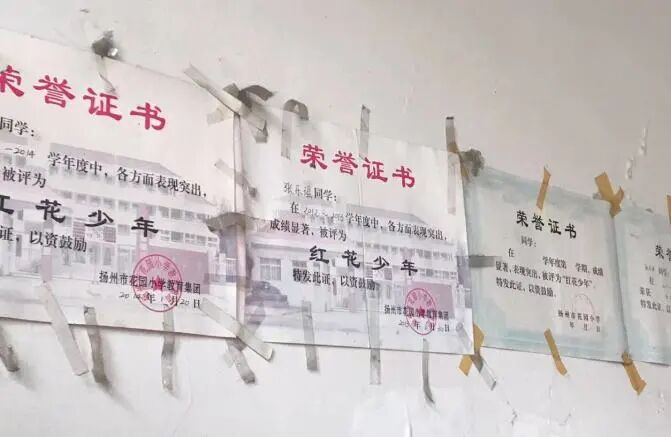 荣誉证书
同学:
-2014 学年度中,各方面表现突出,
被评为
红花少年
证,以资鼓励。
扬州市花园小学教育集团
月20日
荣誉证书
张 同学:
在 学年度中,各方面表现突出,
成绩显著,被评为
红花少年
特发此证,以资鼓励。
扬州市花园小学教育集团
月20日
荣誉证书
同学:
在 学年度第 学期,成绩
显著,表现突出,被评为“红花少年”
特发此证,以资鼓励。
扬州市花园小学
年 月 日
荣
在
显著
特发此证